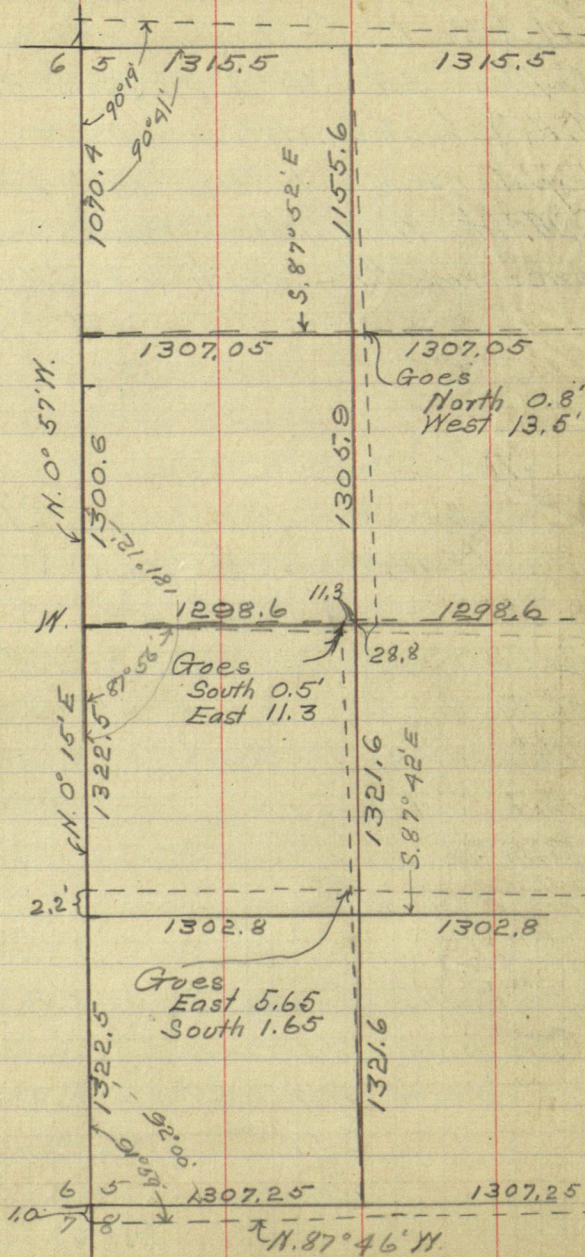 6 5 1315.5 1315.5
90°19'
90°41'
1070.4
1155.6
S. 87°52' E
1307.05 1307.05
Goes
North 0.8'
West 13.5'
N. 0° 57' W.
1300.6
1305.9
181°12'
W. 1298.6 11.3 1298.6
28.8
87°56'
Goes
South 0.5'
East 11.3
N. 0° 15' E
1322.5
1321.6
S. 87°42' E
2.2'
1302.8 1302.8
Goes
East 5.65
South 1.65
1322.5
1321.6
92°00'
91°59'
6 5 1307.25 1307.25
1.0 7 8
N. 87°46' W.